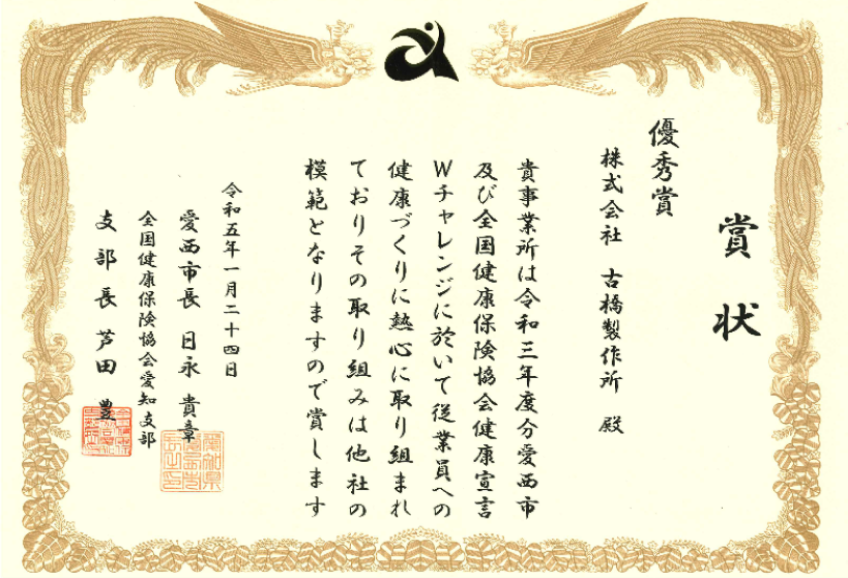 賞状
優秀賞
株式会社 古橋製作所 殿
貴事業所は令和三年度分愛西市
及び全国健康保険協会健康宣言
Wチャレンジに於いて従業員への
健康づくりに熱心に取り組まれ
ておりその取り組みは他社の
模範となりますので賞します
令和五年一月二十四日
愛西市長 日永貴章
全国健康保険協会愛知支部
支部長 芦田 豊